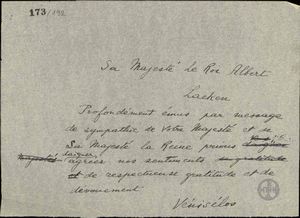 173/192
Sa Majesté Le Roi Albert
Laeken
Profondément émus par message
de sympathie de Votre Majesté et de
Sa Majesté la Reine prions
daigner
majestés agréer nos sentiments de gratitude
et de respectueuse gratitude et de
devouement
Vénisélos